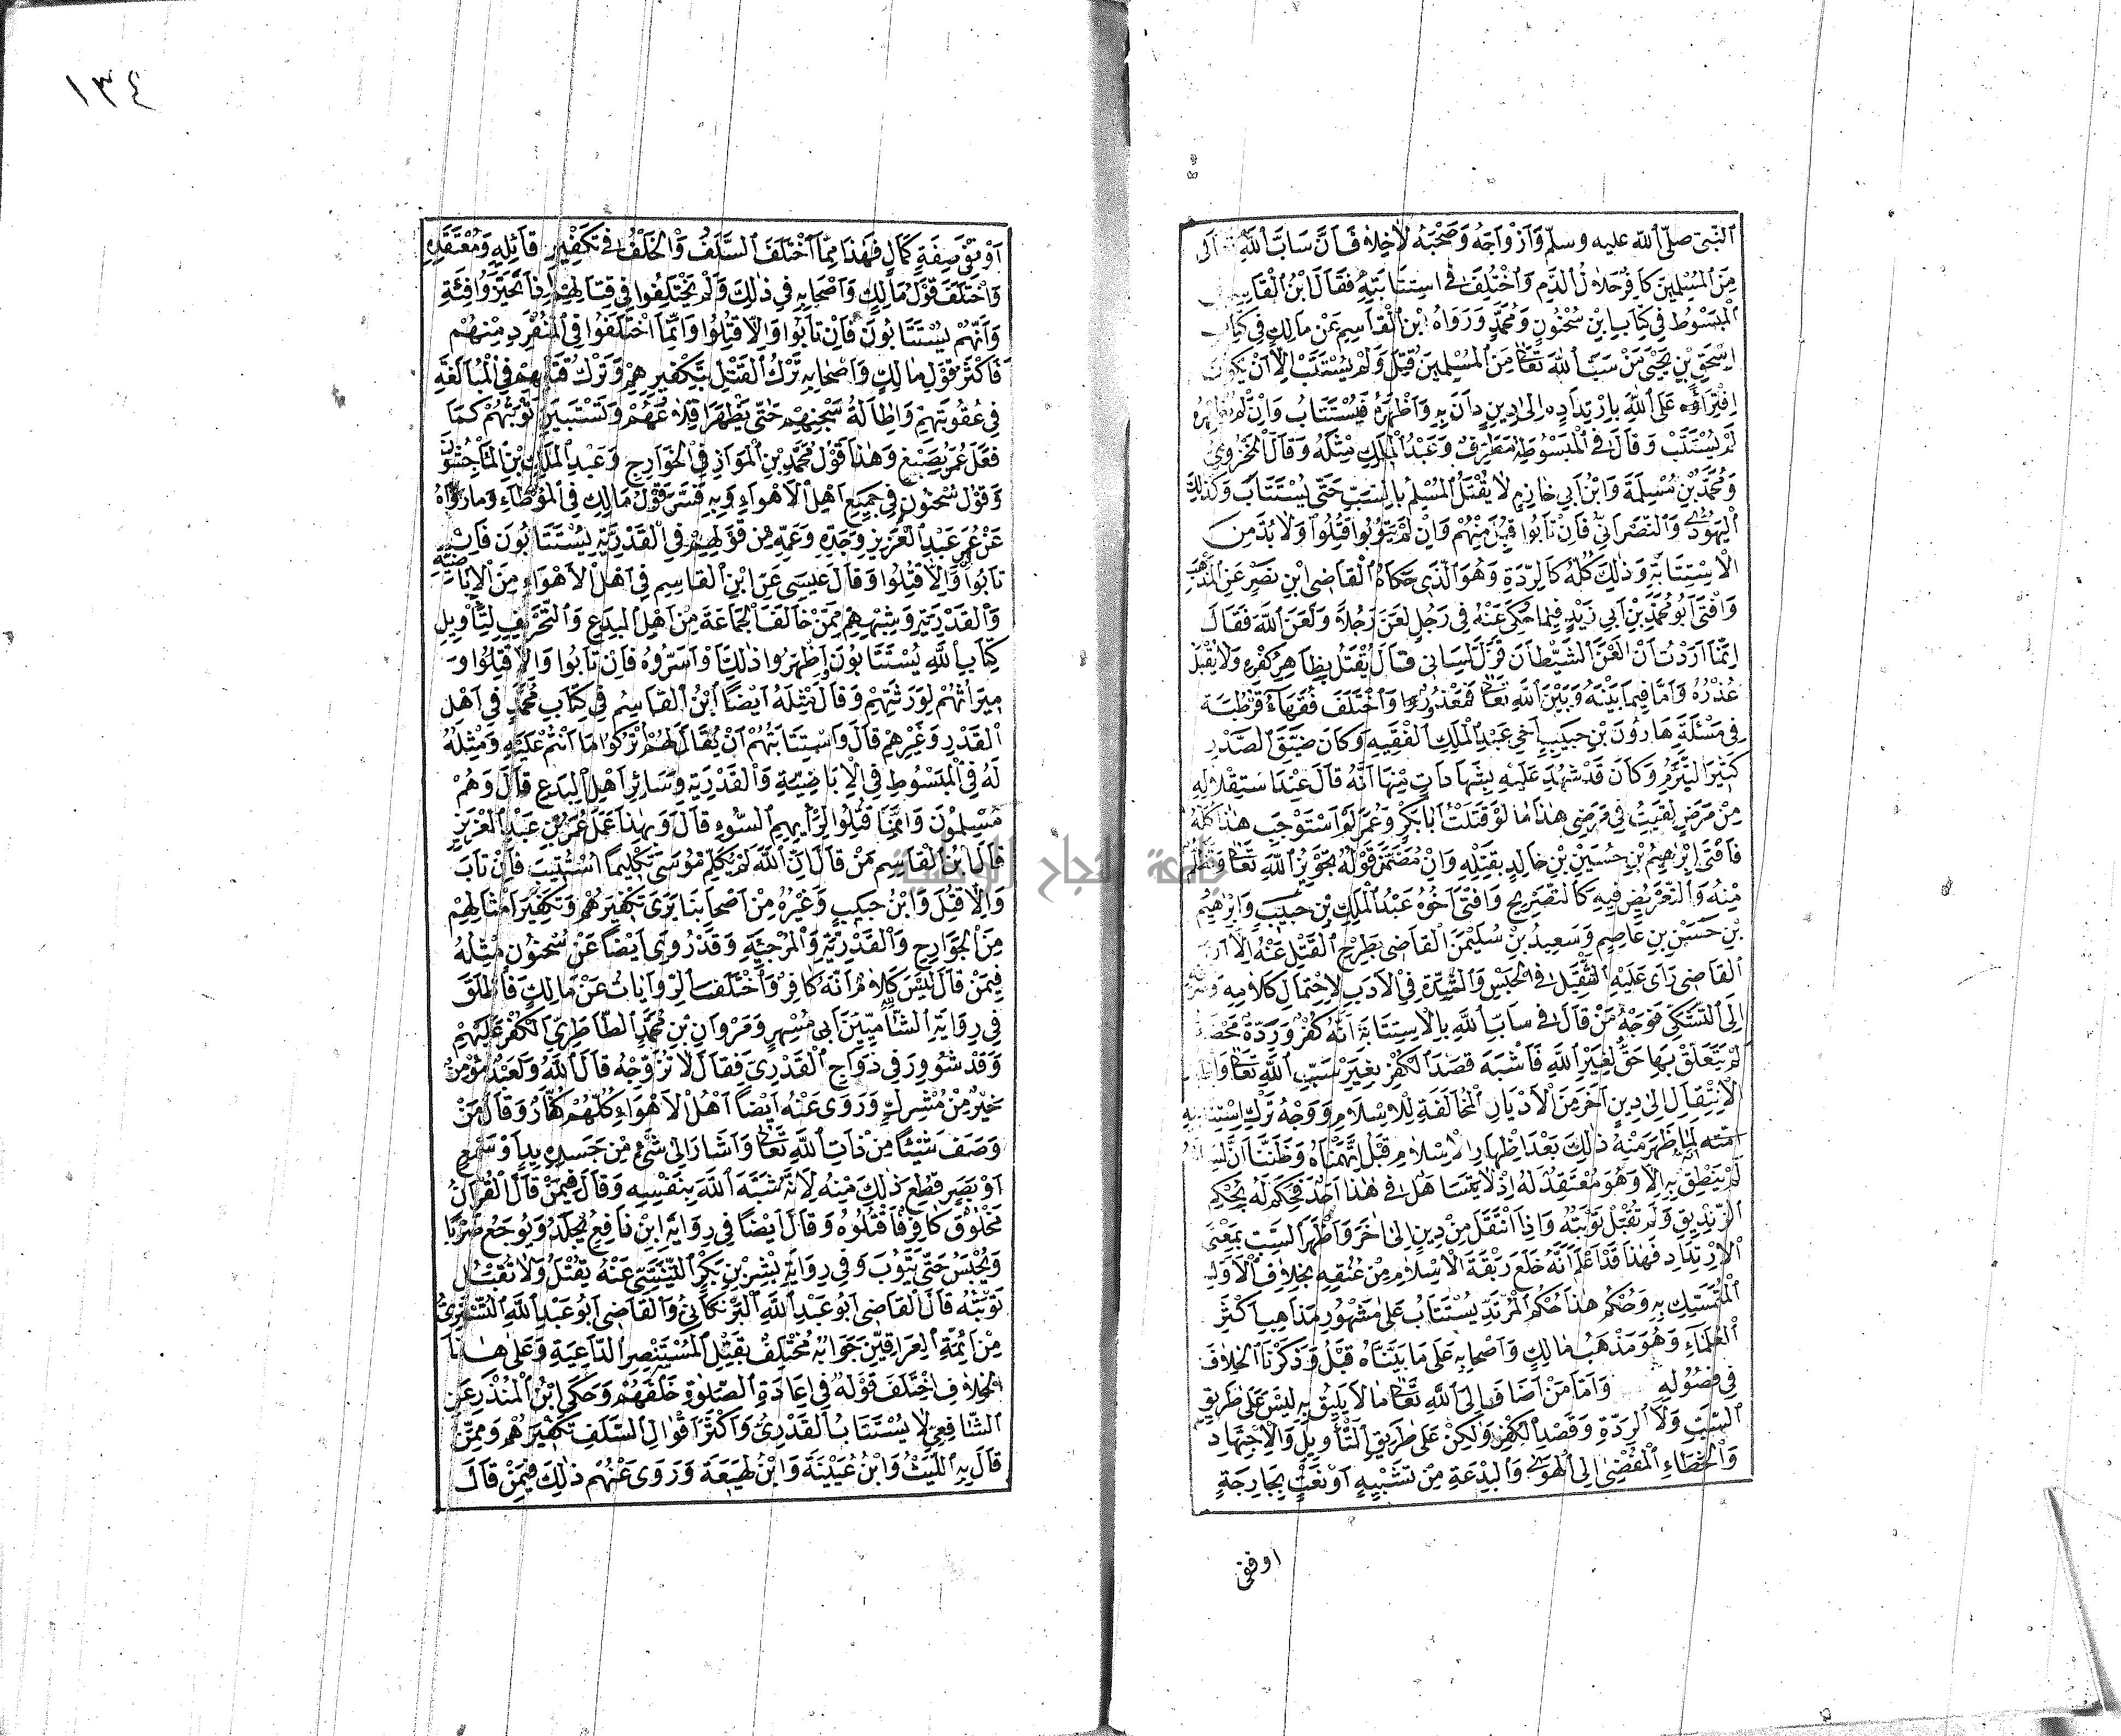 النبى صلى الله عليه وسلم وَاَزْوَاجَهُ وَصَحْبَهُ لاَخِلاٰفَ اَنَّ سَابَّ اللهِ تعالى
مِنَ الْمُسْلِمينَ كَافِرٌ حَلاٰلُ الدَّمِ وَاخْتُلِفَ فى اسْتِتَابَتِهِ فَقَالَ ابْنُ الْقَاسِمِ
الْمَبْسُوطِ فِي كِتَابِ ابْنِ سُحْنُونٍ وَمُحَمَّدٍ وَرَوَاهُ ابْنُ الْقَاسِمِ عَنْ مَالِكٍ فِي كِتَابِ
اِسْحٰقَ بْنِ يَحْيَى مَنْ سَبَّ اللهَ تَعَا مِنَ الْمُسْلِمِينَ قُتِلَ وَلَمْ يُسْتَتَبْ اِلاَّ اَنْ يَكُونَ
افْتِرَاؤُه عَلَى اللهِ بِارْتِدَادِه اِلٰى دِينٍ دَانَ بِهِ وَاَظْهَرَهُ فَيُسْتَتَابُ وَاِنْ لَمْ يُظْهِرْهُ
لَمْ يُسْتَتَبْ وَقَالَ فِى الْمَبْسُوطَةِ مُطَرِّفٌ وَعَبْدُ الْمَلِكِ مِثْلَهُ وَقَالَ الْمَخْزُومِيُّ
وَمُحَمَّدُ بْنُ مَسْلَمَةَ وَابْنُ اَبِي حَازِمٍ لاٰ يُقْتَلُ الْمُسْلِمُ بِالسَّبِّ حَتَّى يُسْتَتَابَ وَكَذٰلِكَ
الْيَهُودِىُّ وَالنَّصْرَانِيُّ فَاِنْ تَابُوا قُبِلَ مِنْهُمْ وَاِنْ لَمْ يَتُوبُوا قُتِلُوا وَلاٰ بُدَّ مِنَ
الْاِسْتِتَابَةِ وَذٰلِكَ كُلُّهُ كَالرِّدَّةِ وَهُوَ الَّذِى حَكَاهُ الْقَاضِى ابْنُ نَصْرٍ عَنِ الْمَذْهَبِ
وَاَفْتَى اَبُو مُحَمَّدِ بْنُ اَبِي زَيْدٍ فِيمَا حُكِىَ عَنْهُ فِي رَجُلٍ لَعَنَ رَجُلاً وَلَعَنَ اللهَ فَقَالَ
اِنَّمَا اَرَدْتُ اَنْ اَلْعَنَ الشَّيْطَانَ فَزَلَّ لِسَانِى فقَالَ يُقْتَلُ بِظَاهِرِ كُفْرِهِ وَلاٰ يُقْبَلُ
عُذْرُهُ وَاَمَّا فِيمَا بَيْنَهُ وَبَيْنَ اللهِ تَعَا فَمَعْذُورٌ وَاخْتَلَفَ فُقَهَاءُ قُرْطُبَةَ
فِى مَسْئَلَةِ هَارُونَ بْنِ حَبِيبٍ اَخِي عَبْدِ الْمَلِكِ الْفَقِيهِ وَكَانَ ضَيِّقَ الصَّدْرِ
كَثِيرَ التَّبَرُّمِ وَكَانَ قَدْ شُهِدَ عَلَيْهِ بِشَهَادَاتٍ مِنْهَا اَنَّهُ قَالَ عِنْدَ اسْتِقْلاٰلِهِ
مِنْ مَرَضٍ لَقِيتُ فِي مَرَضِى هٰذَا مَا لَوْ قَتَلْتُ اَبَابَكْرٍ وَعُمَرَ لَمْ اَسْتَوْجِبْ هٰذَا كُلَّهُ
فَاَفْتَى اِبْرٰهِيمُ بْنُ حُسَيْنِ بْنِ خَالِدٍ بِقَتْلِهِ وَاَنَّ مُضَمَّنَ قَوْلِهِ تَجْوِيرُ اللهِ تَعَا وَتَظَلُّمٌ
مِنْهُ وَالتَّعْرِيضُ فِيهِ كَالتَّصْرِيحِ وَاَفْتَى اَخُوهُ عَبْدُ الْمَلِكِ بْنُ حَبِيبٍ وَاِبْرٰهِيمُ
بْنُ حُسَيْنِ بْنِ عَاصِمٍ وَسَعِيدُ بْنُ سُلَيْمٰنَ الْقَاضِى بِطَرْحِ الْقَتْلِ عَنْهُ اِلاَّ اَنَّ
الْقَاضِى رَاَى عَلَيْهِ التَّثْقِيلَ فِى الْحَبْسِ وَالشِّدَّةَ فِي الْاَدَبِ لِاحْتِمَالِ كَلاٰمِهِ وَصَرْفِهِ
اِلَى التَّشَكِّى فَوَجْهُ مَنْ قَالَ فى سَابِّ اللهِ بِالْاِسْتِتَابَةِ اَنَّهُ كُفْرٌ وَرِدَّةٌ مَحْضَةٌ
لَمْ يَتَعَلَّقْ بِهَا حَقٌّ لِغَيْرِ اللهِ فَاَشْبَهَ قَصْدَ الْكُفْرِ بِغَيْرِ سَبِّ اللهِ تَعَا وَاِظْهَارِ
الْاِنْتِقَالِ اِلٰى دِينٍ اٰخَرَ مِنَ الْاَدْيَانِ الْمُخَالَفَةِ لِلْاِسْلاٰمِ وَوَجْهُ تَرْكِ اسْتِتَابَتِهِ
اَنَّهُ لَمَّا ظَهَرَ مِنْهُ ذٰلِكَ بَعْدَ اِظْهَارِ الْاِسْلاٰمِ قَبْلُ اتَّهَمْنَاهُ وَظَنَنَّا اَنَّ لِسَانَهُ
لَمْ يَنْطِقْ بِهِ اِلاَّ وَهُوَ مُعْتَقِدٌ لَهُ اِذْ لاٰ يَتَسَاهَلُ فى هٰذَا اَحَدٌ فَحُكِمَ لَهُ بِحُكْمِ
الزِّنْدِيقِ وَلَمْ تُقْبَلْ تَوْبَتُهُ وَاِذَا انْتَقَلَ مِنْ دِينٍ اِلٰى اٰخَرَ وَاَظْهَرَ السَّبَّ بِمَعْنَى
الْاِرْتِدَادِ فَهٰذَا قَدْ اَعْلَمَ اَنَّهُ خَلَعَ رِبْقَةَ الْاِسْلاٰمِ مِنْ عُنُقِهِ بِخِلاٰفِ الْاَوَّلِ
الْمُتَمَسِّكِ بِهِ وَحُكْمُ هٰذَا حُكْمُ الْمُرْتَدِّ يُسْتَتَابُ عَلٰى مَشْهُورِ مَذَاهِبِ اَكْثَرِ
الْعُلَمَاءِ وَهُوَ مَذْهَبُ مَالِكٍ وَاَصْحَابِهِ عَلٰى مَا بَيَّنَّاهُ قَبْلُ وَذَكَرْنَا الْخِلاٰفَ
فِي فُصُولِهِ وَاَمَّا مَنْ اَضَافَ اِلَى اللهِ تَعَا مَا لاَ يَلِيقُ بِهِ لَيْسَ عَلٰى طَرِيقِ
السَّبِّ وَلاَ الرِّدَّةِ وَقَصْدِ الْكُفْرِ وَلٰكِنْ عَلٰى طَرِيقِ التَّأْوِيلِ وَالْاِجْتِهَادِ
وَالْخَطَاءِ الْمُفْضِى اِلَى الْهَوٰى وَالْبِدْعَةِ مِنْ تَشْبِيهٍ اَوْ نَعْتٍ بِجَارِحَةٍ
اونفى
١٣٤
اَوْ نَفْىِ صِفَةِ كَمَالٍ فَهٰذَا مِمَّا اخْتَلَفَ السَّلَفُ وَالْخَلَفُ فى تَكْفِيرِ قَائِلِهِ وَمُعْتَقِدِهِ
وَاخْتَلَفَ قَوْلُ مَالِكٍ وَاَصْحَابِهِ فِي ذٰلِكَ وَلَمْ يَخْتَلِفُوا فِي قِتَالِهِمْ اِذَا تَحَيَّزُوا فِئَةً
وَاَنَّهُمْ يُسْتَتَابُونَ فَاِنْ تَابُوا وَاِلاَّ قُتِلُوا وَاِنَّمَا اخْتَلَفُوا فِي الْمُنْفَرِدِ مِنْهُمْ
فَاَكْثَرُ قَوْلِ مَالِكٍ وَاَصْحَابِهِ تَرْكُ الْقَتْلِ بِتَكْفِيرِهِمْ وَتَرْكُ قَتْلِهِمْ فِي الْمُبَالَغَةِ
فِي عُقُوبَتِهِمْ وَاِطَالَةُ سِجْنِهِمْ حَتّٰى يَظْهَرَ اِقْلاٰعُهُمْ وَتَسْتَبِينَ تَوْبَتُهُمْ كَمَا
فَعَلَ عُمَرُ بِصَبِيغٍ وَهٰذَا قَوْلُ مُحَمَّدِ بْنِ الْمَوَّازِ فِي الْخَوَارِجِ وَعَبْدِ الْمَلِكِ بْنِ الْمَاجِشُونِ
وَقَوْلُ سُحْنُونٍ فِي جَمِيعِ اَهْلِ الْاَهْوَاءِ وَبِهِ فُسِّرَ قَوْلُ مَالِكٍ فِي الْمُوَطَّاءِ وَمَا رَوَاهُ
عَنْ عُمَرَ بْنِ عَبْدِ الْعَزِيزِ وَجَدِّهِ وَعَمِّهِ مِنْ قَوْلِهِمْ فِي الْقَدَرِيَّةِ يُسْتَتَابُونَ فَاِنْ
تَابُوا وَاِلاَّ قُتِلُوا وَقَالَ عِيسٰى عَنِ ابْنِ الْقَاسِمِ فِي اَهْلِ الْاَهْوَاءِ مِنَ الْاِبَاضِيَّةِ
وَالْقَدَرِيَّةِ وَشِبْهِهِمْ مِمَّنْ خَالَفَ الْجَمَاعَةَ مِنْ اَهْلِ الْبِدَعِ وَالتَّحْرِيفِ لِتَأْوِيلِ
كِتَابِ اللهِ يُسْتَتَابُونَ اَظْهَرُوا ذٰلِكَ اَوْ اَسَرُّوهُ فَاِنْ تَابُوا وَاِلاَّ قُتِلُوا وَ
مِيرَاثُهُمْ لِوَرَثَتِهِمْ وَقَالَ مِثْلَهُ اَيْضًا ابْنُ الْقَاسِمِ فِي كِتَابِ مُحَمَّدٍ فِي اَهْلِ
الْقَدَرِ وَغَيْرِهِمْ قَالَ وَاسْتِتَابَتُهُمْ اَنْ يُقَالَ لَهُمْ اتْرُكُوا مَا اَنْتُمْ عَلَيْهِ وَمِثْلُهُ
لَهُ فِي الْمَبْسُوطِ فِي الْاِبَاضِيَّةِ وَالْقَدَرِيَّةِ وَسَائِرِ اَهْلِ الْبِدَعِ قَالَ وَهُمْ
مُسْلِمُونَ وَاِنَّمَا قُتِلُوا لِرَأْيِهِمِ السُّوءِ قَالَ وَبِهٰذَا عَمِلَ عُمَرُ بْنُ عَبْدِ الْعَزِيزِ
قَالَ ابْنُ الْقَاسِمِ مَنْ قَالَ اِنَّ اللهَ لَمْ يُكَلِّمْ مُوسٰى تَكْلِيمًا اسْتُتِيبَ فَاِنْ تَابَ
وَاِلاَّ قُتِلَ وَابْنُ حَبِيبٍ وَغَيْرُهُ مِنْ اَصْحَابِنَا يَرٰى تَكْفِيرَهُمْ وَتَكْفِيرَ اَمْثَالِهِمْ
مِنَ الْخَوَارِجِ وَالْقَدَرِيَّةِ وَالْمُرْجِئَةِ وَقَدْ رُوِىَ اَيْضًا عَنْ سُحْنُونٍ مِثْلُهُ
فِيمَنْ قَالَ لَيْسَ لِلّٰهِ كَلاٰمٌ اَنَّهُ كَافِرٌ وَاخْتَلَفَ الرِّوَايَاتُ عَنْ مَالِكٍ فَاَطْلَقَ
فِي رِوَايَةِ الشَّامِيِّينَ اَبِى مُسْهِرٍ وَمَرْوَانَ بْنِ مُحَمَّدٍ الطَّاطَرِيِّ الْكُفْرَ عَلَيْهِمْ
وَقَدْ شُووِرَ فِي زَوَاجِ الْقَدَرِىِّ فَقَالَ لاَ تُزَوِّجْهُ قَالَ اللهُ وَلَعَبْدٌ مُؤْمِنٌ
خَيْرٌ مِنْ مُشْرِكٍ وَرُوِىَ عَنْهُ اَيْضًا اَهْلُ الْاَهْوَاءِ كُلُّهُمْ كُفَّارٌ وَقَالَ مَنْ
وَصَفَ شَيْئًا مِنْ ذَاتِ اللهِ تَعَا وَاَشَارَ اِلٰى شَىْءٍ مِنْ جَسَدِهِ يَدٍ اَوْ سَمْعٍ
اَوْ بَصَرٍ قُطِعَ ذٰلِكَ مِنْهُ لِاَنَّهُ شَبَّهَ اللهَ بِنَفْسِهِ وَقَالَ فِيمَنْ قَالَ الْقُرْاٰنُ
مَخْلُوقٌ كَافِرٌ فَاقْتُلُوهُ وَقَالَ اَيْضًا فِي رِوَايَةِ ابْنِ نَافِعٍ يُجْلَدُ وَيُوجَعُ ضَرْبًا
وَيُحْبَسُ حَتّٰى يَتُوبَ وَفِي رِوَايَةِ بِشْرِ بْنِ بَكْرٍ التِّنِّيسِيِّ عَنْهُ يُقْتَلُ وَلاٰ تُقْبَلُ
تَوْبَتُهُ قَالَ الْقَاضِى اَبُو عَبْدِ اللهِ الْبَرْنَكَانِيُّ وَالْقَاضِى اَبُو عَبْدِ اللهِ التُّسْتَرِىُّ
مِنْ اَئِمَّةِ الْعِرَاقِيِّينَ جَوَابُهُ مُخْتَلِفٌ بِقَتْلِ الْمُسْتَنْصِرِ الدَّاعِيَةِ وَعَلٰى هٰذَا
الْخِلاٰفِ اخْتَلَفَ قَوْلُهُ فِي اِعَادَةِ الصَّلٰوةِ خَلْفَهُمْ وَحَكَى ابْنُ الْمُنْذِرِ عَنِ
الشَّافِعِيِّ لاٰ يُسْتَتَابُ الْقَدَرِىُّ وَاَكْثَرُ اَقْوَالِ السَّلَفِ تَكْفِيرُهُمْ وَمِمَّنْ
قَالَ بِهِ اللَّيْثُ وَابْنُ عُيَيْنَةَ وَابْنُ لَهِيعَةَ وَرُوِىَ عَنْهُمْ ذٰلِكَ فِيمَنْ قَالَ
جامعة النجاح الوطنية